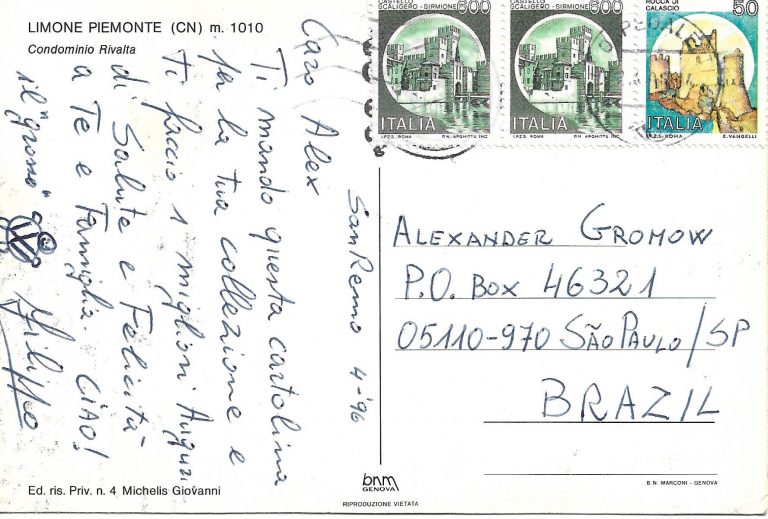 LIMONE PIEMONTE (CN) m. 1010
Condominio Rivalta
SanRemo 4-'96
Caro Alex
Ti mando questa cartolina
per la tua collezione e
Ti faccio i migliori Auguri
di Salute e Felicità
a Te e Famiglia. CIAO!
il "grosso"
Filippo
Ed. ris. Priv. n. 4 Michelis Giovanni
bnm
GENOVA
RIPRODUZIONE VIETATA
CASTELLO
SCALIGERO - SIRMIONE
600
ITALIA
I.P.Z.S. ROMA
M.N. ARGHITTU INC
CASTELLO
SCALIGERO - SIRMIONE
600
ITALIA
I.P.Z.S. ROMA
M.N. ARGHITTU INC
ROCCA DI
CALASCIO
50
ITALIA
I.P.Z.S. ROMA
E. VANGELLI
ALEXANDER GROMOW
P.O. BOX 46321
05110-970 SÃO PAULO/SP
BRAZIL
B. N. MARCONI - GENOVA